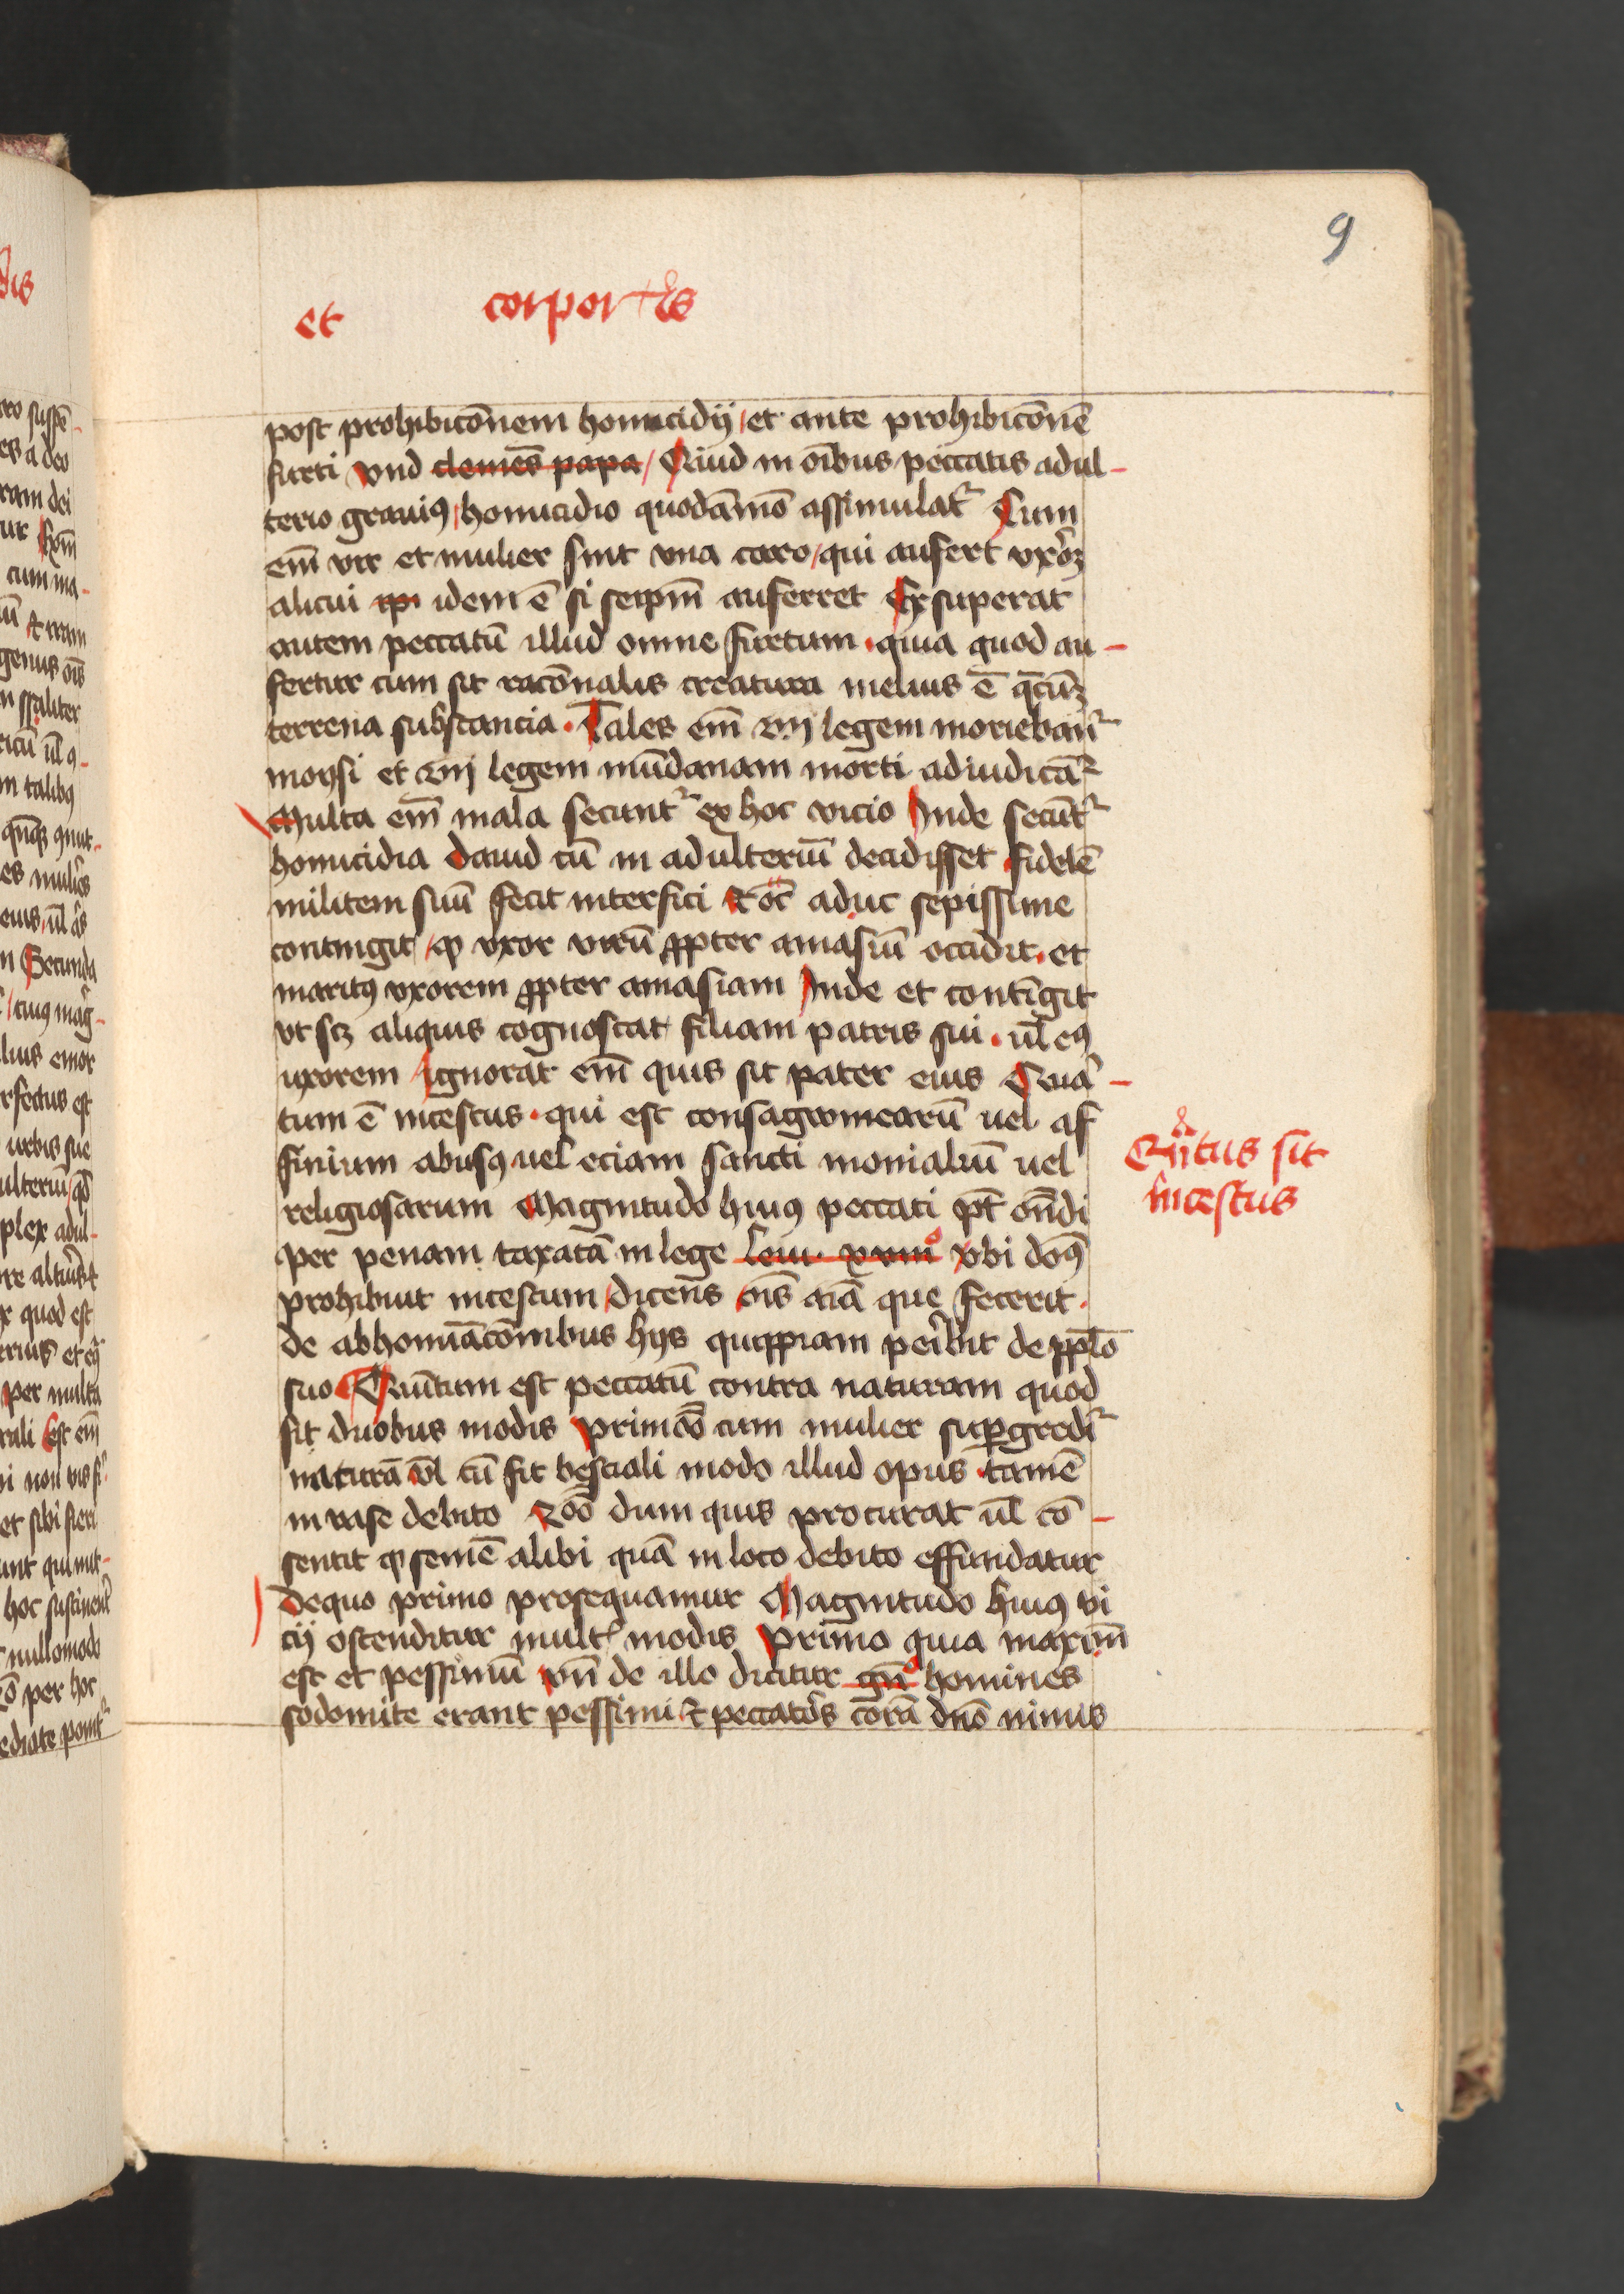 9
et corpor̄tꝭs
post prohibicōnem homicidij et ante prohibicōnē
furti vnd clemēs papa Quid in oībus peccatis adul-
terio grauiꝰ homicidio quodāmō assimulat᷑ Cum
em̄ vir et mulier sint vna caro qui aufert vxorꝫ
alicui ipi idem ē si seipm̄ auferret Exsuperat
autem peccatū illud omne furtum quia quod au-
fertur cum sit racōnalis creatura melius ē q̄cūꝫ
terrena substancia Tales em̄ legem moriebant᷑
moysi et legem mūdanam morti adiudicāt᷑
Multa em̄ mala secunt᷑ ex hoc vicio Inde secūt᷑
homicidia dauid cū in adulteriū decidisset fidelē
militem suū fecit interfici Et oc̄ aduc sepissime
contingit ꝙ vxor virū ꝓpter amasiū occidit et
maritꝰ vxorem ꝓpter amasiam Inde et contīgit
vt scꝫ aliquis cognoscat filiam patris sui ul̄ eiꝰ
uxorem ignorat em̄ quis sit pater eius Quar-
tum ē incestus qui est consagwinearū uel af
finium abusꝰ uel eciam sancti monialiū uel
religiosarum Magnitudo huiꝰ peccati pt̄ on̄di
per penam taxatā in lege leui xviii° vbi dōꝰ
prohibuit incestum dicens oīs aīa que fecerit
de abhomīacōnibus hijs quippiam peribit de pplō
suo Quītum est peccatū contra naturam quod
fit duobus modis primō cum mulier suꝑgredit᷑
naturā vl̄ cū fit bestiali modo illud opus tamē
in vase debito 2dō dum quis procurat ul̄ cō-
sentit ꝙ semē alibi quā in loco debito effundatur
de quo primo prosequamur Magnitudo huiꝰ vi
cij ostenditur mult᷑ modis primo quia maxim̄
est et pessimū vn̄ de illo dicitur gn̄ homines
sodomite erant pessimi et peccatōs corā dnō nimis
Qn̄tus sit
incestus